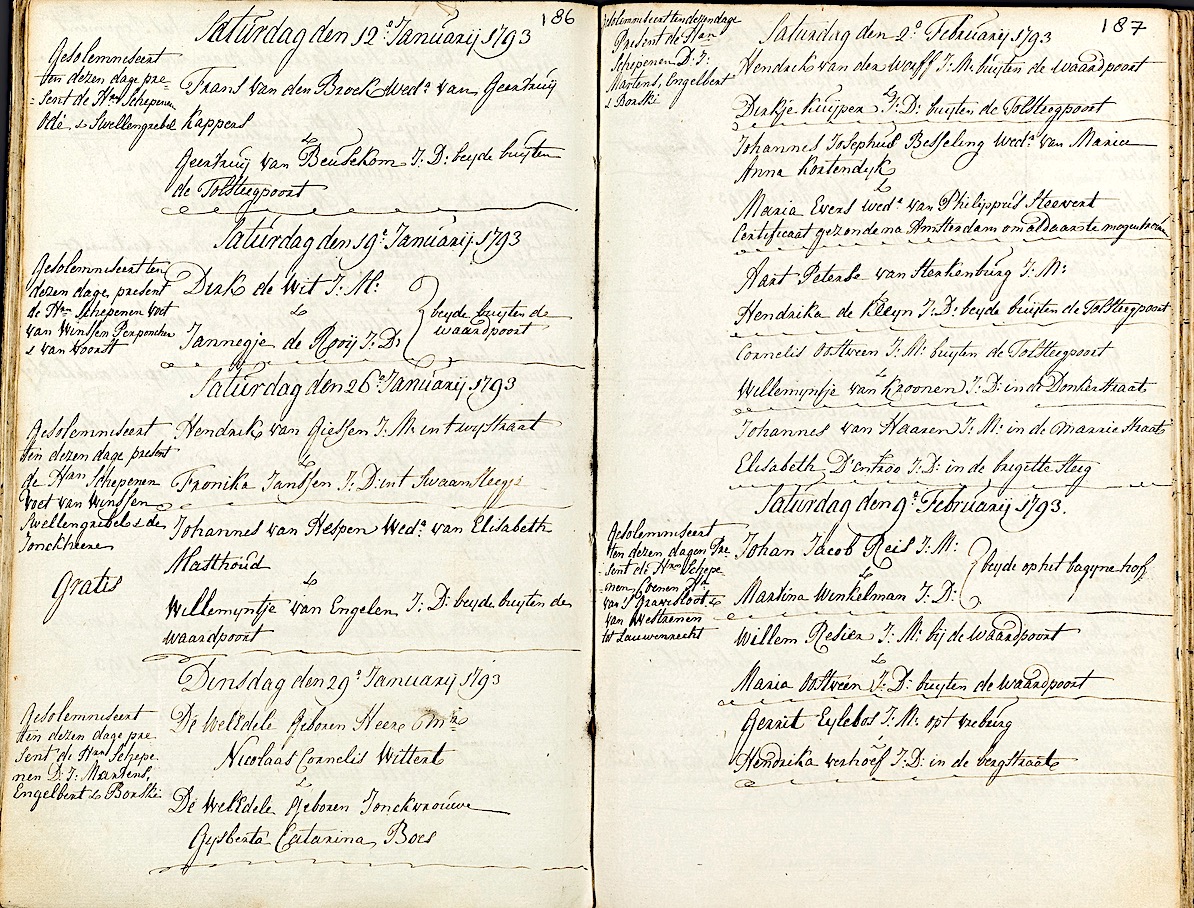 186
Saturdag den 12e Januarij 1793
Gesolemniseert
ten dezen dage pre-
sent de Hrn Schepenen
Odé & Swellengrebel
Frans van den Broek Wedr van Geertruij
Kappers
&
Geertruij van Beusekom J: D: beyde buyten
de Tolsteegpoort
Saturdag den 19e Januarij 1793
Gesolemniseert ten
dezen dage present
de Hrn Schepenen Voet
van Winssen Perponcher
& van Voorst
Dirk de Wit J: M:
&
Jannegje de Rooij J: D:
beyde buyten de
waardpoort
Saturdag den 26e Januarij 1793
Gesolemniseert
ten dezen dage present
de Hrn Schepenen
Voet van Winssen
Swellengrebel & de
Jonckheere
Gratis
Hendrik van Giessen J: M: int wystraat
&
Fronika Janssen J: D: int Swaansteegje
Johannes van Hespen Wedr van Elisabeth
Masthoud
&
Willemyntje van Engelen J: D: beyde buyten de
waardpoort
Dinsdag den 29e Januarij 1793
Gesolemniseert
ten dezen dage pre-
sent de Hrn Schepe-
nen D: J: Martens,
Engelbert & Borski
De WelEdele Geboren Heere Mr
Nicolaas Cornelis Wittert
&
De WelEdele Geboren Jonckvrouwe
Gysberta Catarina Boes
187
Saturdag den 2e Februarij 1793
Gesolemniseert ten dezen dage
Present de Hrn
Schepenen D: J:
Martens, Engelbert
& Borski
Hendrik van der Werff J: M: buyten de waardpoort
&
Dirkje Kuyper J: D: buyten de Tolsteegpoort
Johannes Josephus Besseling Wedr van Maria
Anna Kortendyk
&
Maria Evers Wede van Philippus Stoevert
Certificaat gezonden na Amsterdam om aldaar te mogen trouwen
Aart Peterse van Sterkenburg J: M:
Hendrika de Kleyn J: D: beyde buyten de Tolsteegpoort
Cornelis Oostveen J: M: buyten de Tolsteegpoort
&
Willemyntje van Kroonen J: D: in de Donkerstraat
Johannes van Haaren J: M: in de Mariestraat
&
Elisabeth D'Entroo J: D: in de brigitte Steeg
Saturdag den 9e Februarij 1793.
Gesolemniseert
ten dezen dagen Pre-
sent de Hrn Schepe-
nen Coenen
van 's Gravesloot &
van Westrenen
tot Lauwenrecht
Johan Jacob Reis J: M:
&
Martina Winkelman J: D:
beyde op het bagyne hof
Willem Resier J: M: bij de Waardpoort
&
Maria Oostveen J: D: buyten de Waardpoort
Gerrit Eylebos J: M: opt vreburg
&
Hendrika verhoef J: D: in de bergstraat